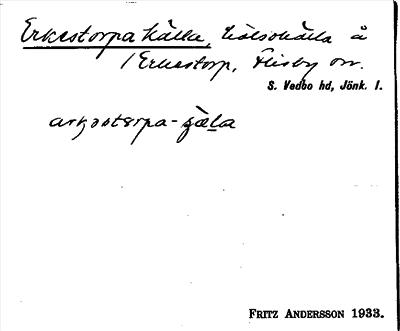 Erkestorpa källa, hälsokälla å
/ Erkestorp, Flisby sn.
S. Vedbo hd, Jönk. l.
FRITZ ANDERSSON 1933.